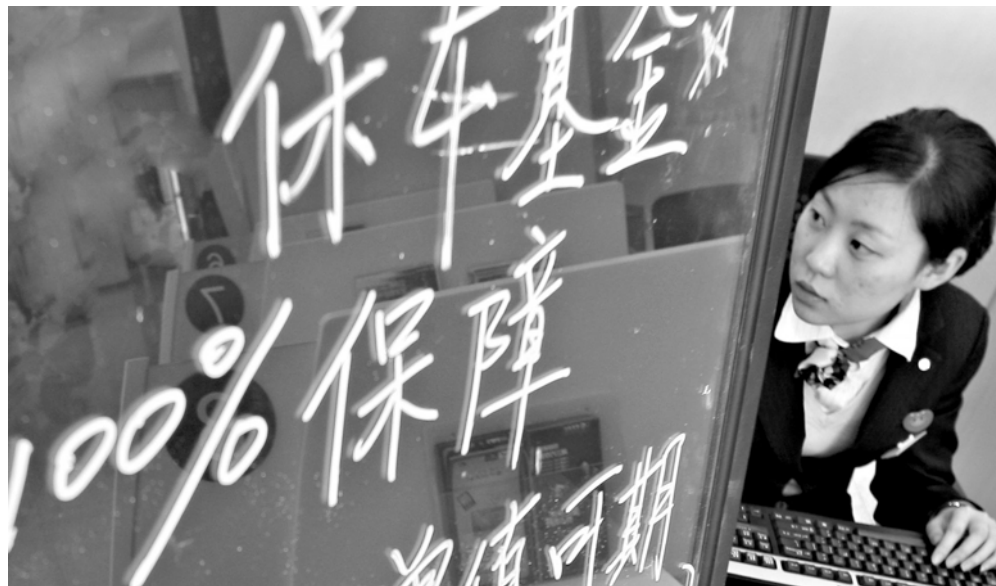 保本基金
100%保障
值可期,